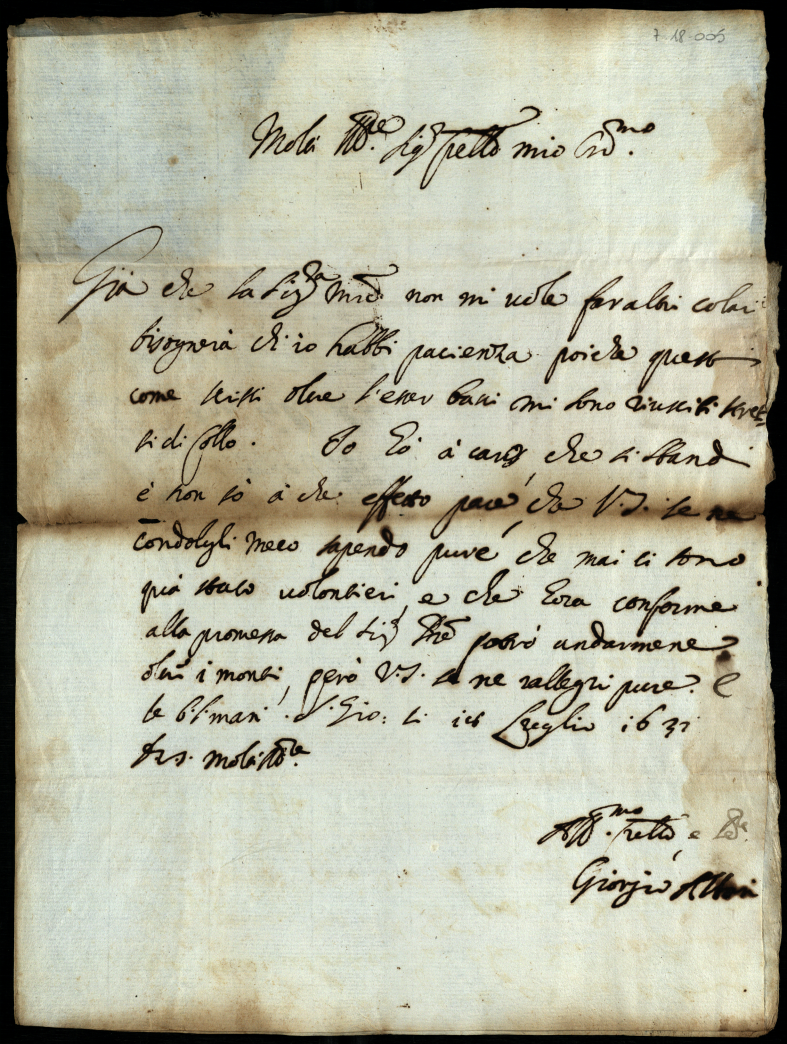 7-18-005
Molt' Ill.re Sig.r fratello mio Oss.mo
Già che la Sig.ra Mad.e non mi vole far altri colari
bisognerà ch'io habbi pacienza poiche questi
come scrissi oltre l'esser bassi mi sono riusciti stret=
ti di collo. Io hò à caro, che si stand
è non sò à che effetto pare, che V.S. se ne
condolgli meco sapendo pure che mai ci sono
già stato volontieri, e che hora conforme
alla promessa del Sig.r potrò andarmene
oltre i monti, però V.S. se ne rallegri pure. E
le b. le mani. S. Gio: li Luglio 1631
D.V.S. molt' Ill.re
Aff.mo fratello, e
Giorgio